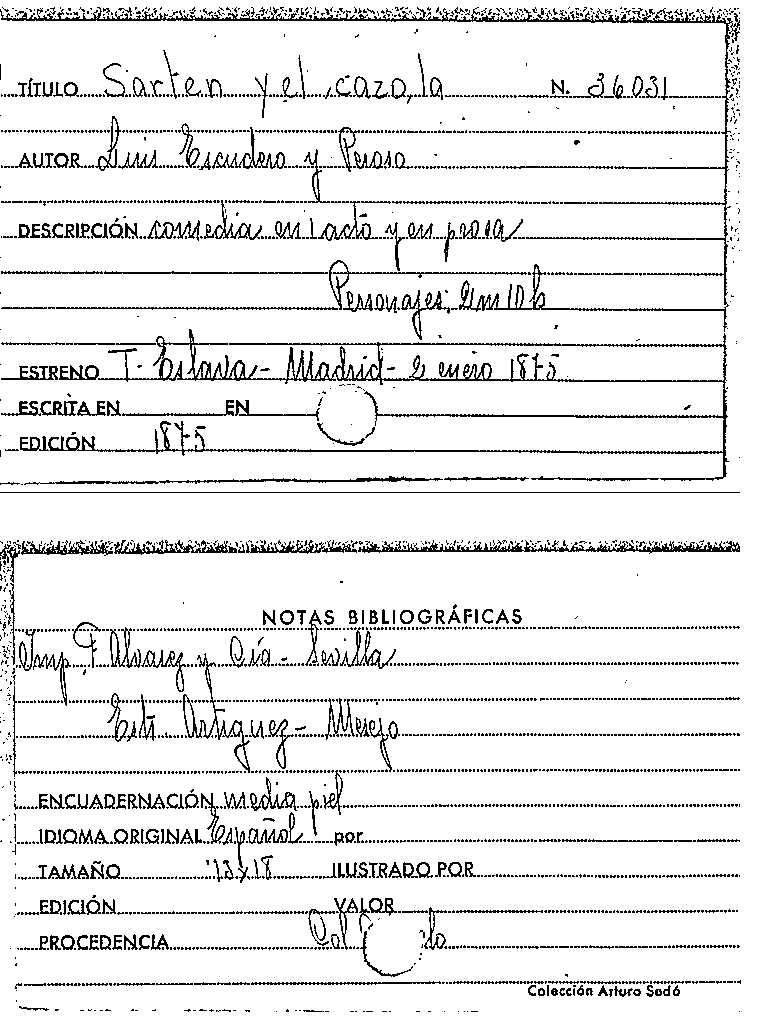 TÍTULO Sarten y el cazo, la N. 36031
AUTOR Luis Escudero y Peroso
DESCRIPCIÓN comedia en 1 acto y en prosa
Personajes: 2m 10 h
ESTRENO T. Eslava - Madrid - 2 enero 1875
ESCRITA EN EN
EDICIÓN 1875
NOTAS BIBLIOGRÁFICAS
Imp. F. Alvarez y Cía - Sevilla
Estr. Artiguez - Mesejo
ENCUADERNACIÓN media piel
IDIOMA ORIGINAL Español por
TAMAÑO 13x18 ILUSTRADO POR
EDICIÓN VALOR
PROCEDENCIA Col
Colección Arturo Sedó